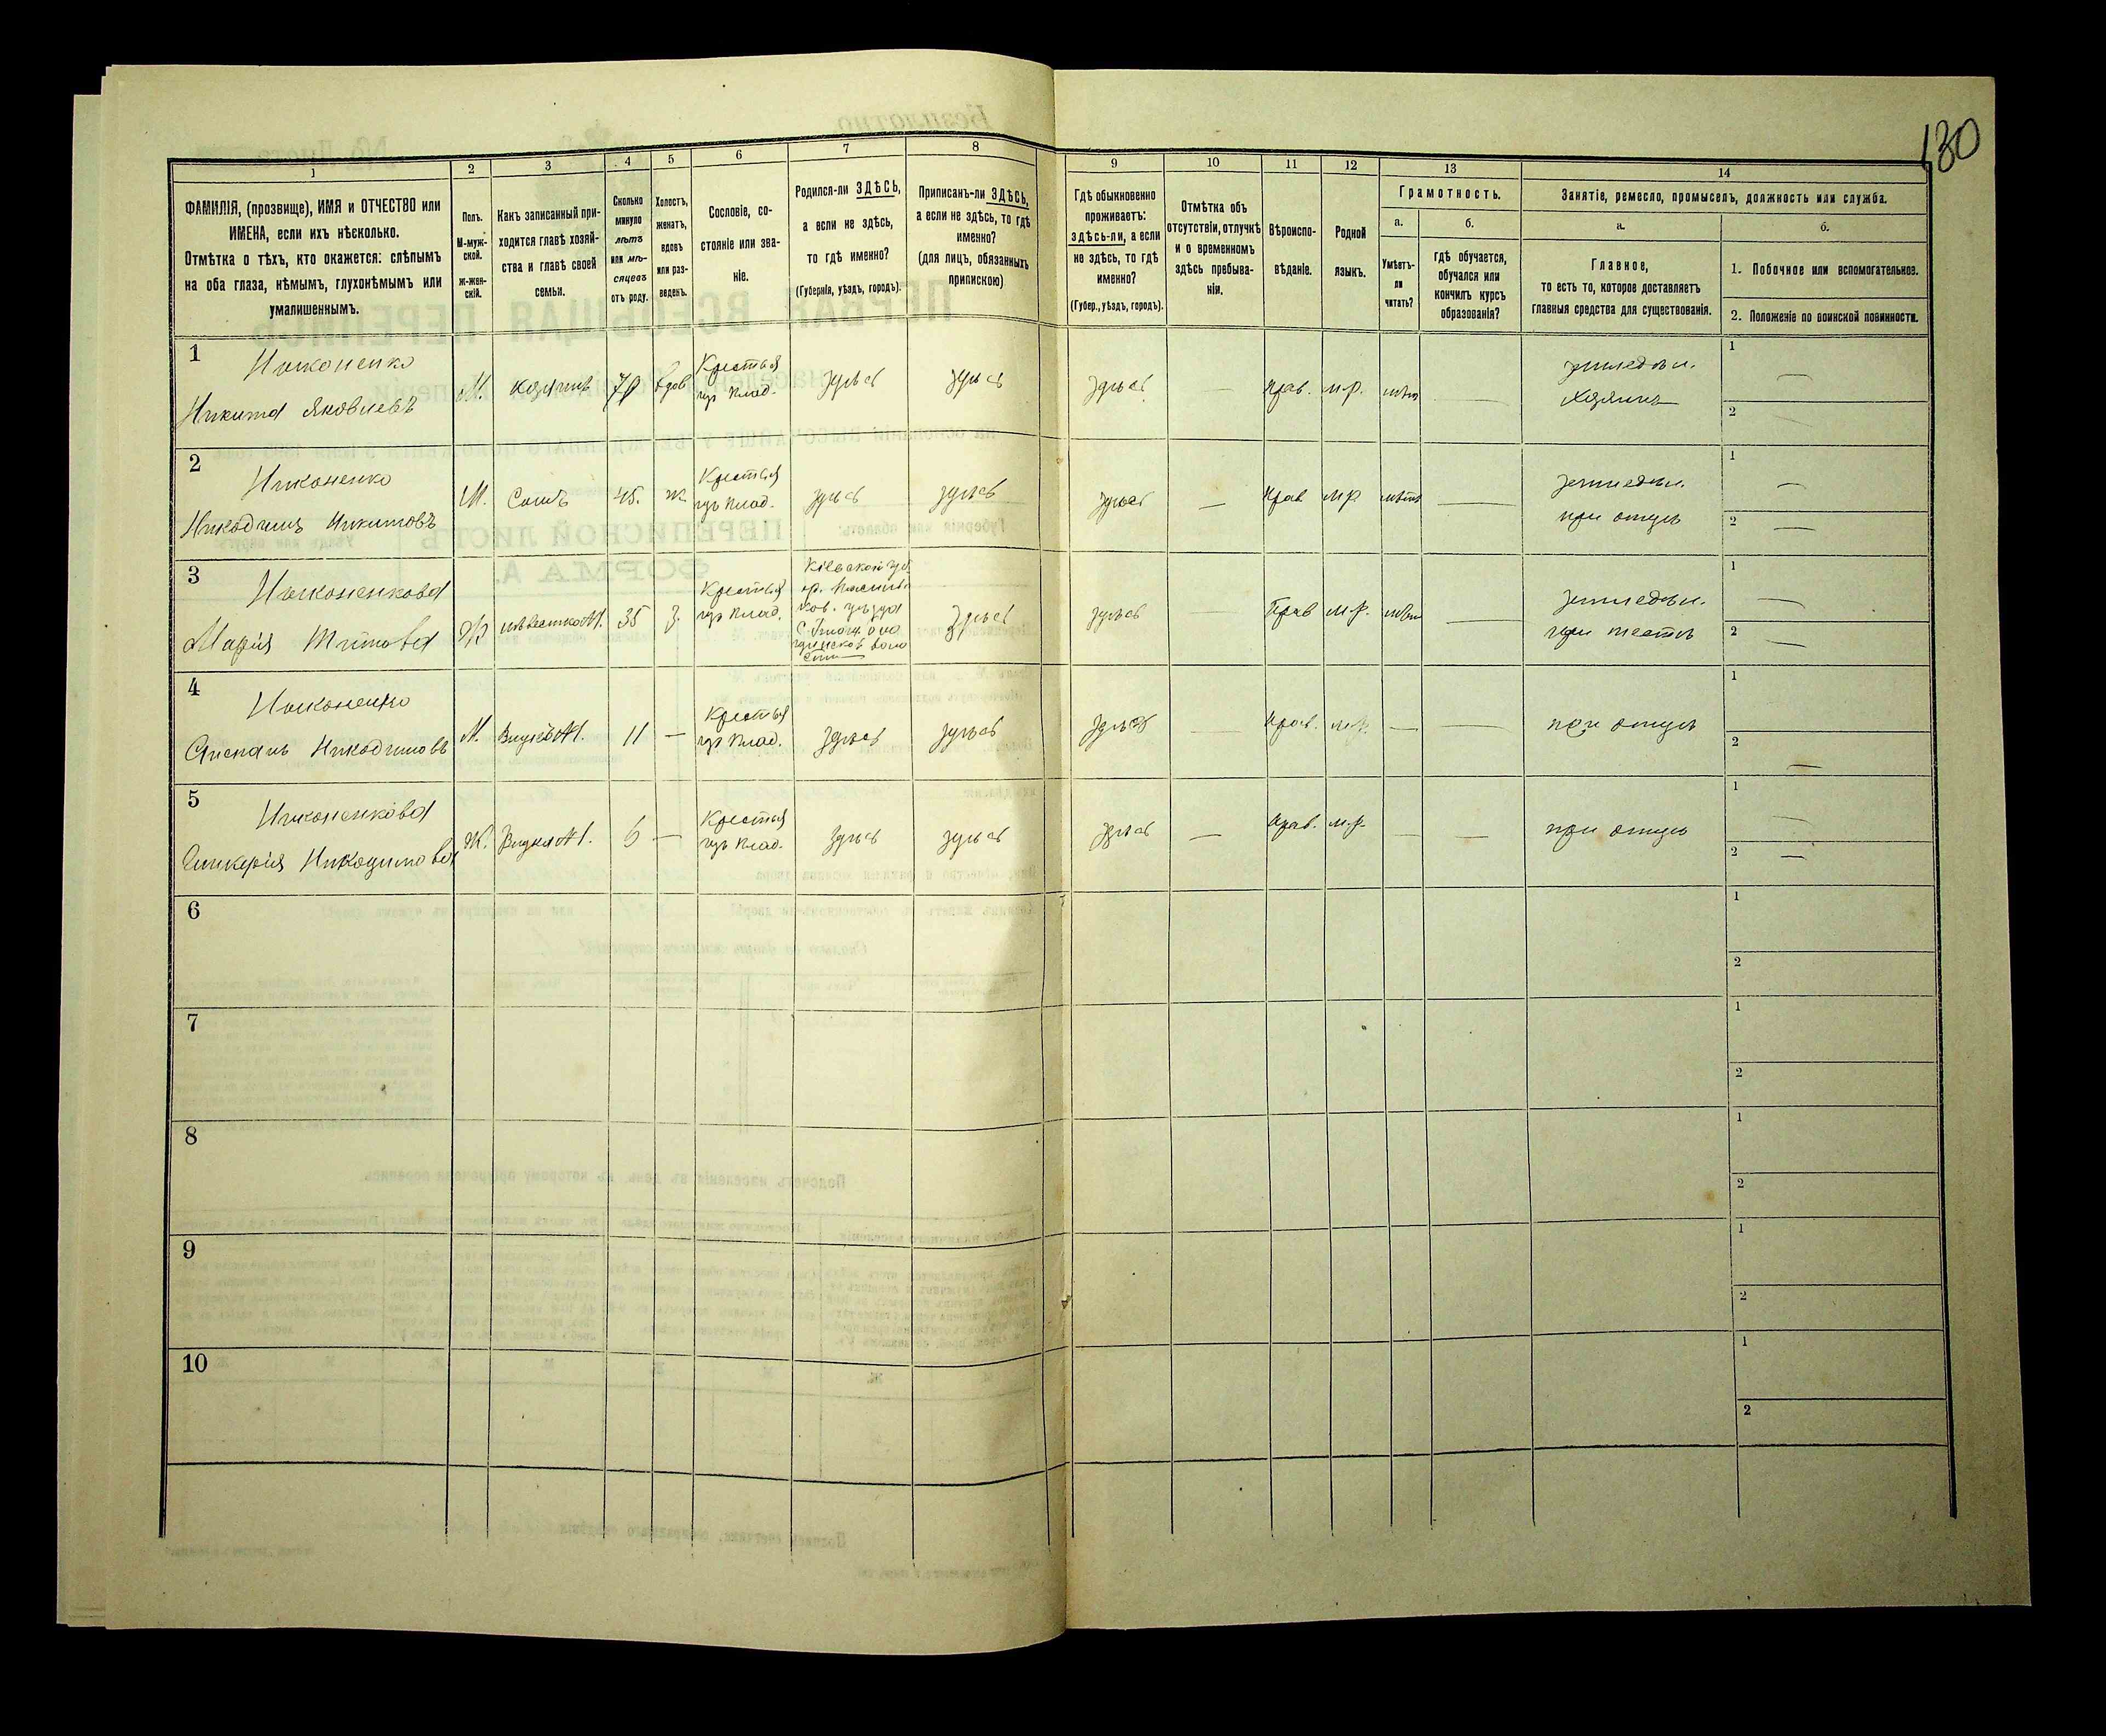 130
1 2 3 4 5 6 7 8 9 10 11 12 13 14
ФАМИЛІЯ, (прозвище), ИМЯ и ОТЧЕСТВО или
ИМЕНА, если ихъ нѣсколько.
Отмѣтка о тѣхъ, кто окажется: слѣпымъ
на оба глаза, нѣмымъ, глухонѣмымъ или
умалишеннымъ.
Полъ.
М-муж-
ской.
Ж-жен-
скій.
Какъ записанный при-
ходится главѣ хозяй-
ства и главѣ своей
семьи.
Сколько
минуло
лѣтъ
или мѣ-
сяцевъ
отъ роду.
Холостъ,
женатъ,
вдовъ
или раз-
веденъ.
Сословіе, со-
стояніе или зва-
ніе.
Родился-ли ЗДѢСЬ,
а если не здѣсь,
то гдѣ именно?
(Губернія, уѣздъ, городъ).
Приписанъ-ли ЗДѢСЬ,
а если не здѣсь, то гдѣ
именно?
(для лицъ, обязанныхъ
припискою)
Гдѣ обыкновенно
проживаетъ:
здѣсь-ли, а если
не здѣсь, то гдѣ
именно?
(Губер., уѣздъ, городъ).
Отмѣтка объ
отсутствіи, отлучкѣ
и о временномъ
здѣсь пребыва-
ніи.
Вѣроиспо-
вѣданіе.
Родной
языкъ.
Грамотность.
а.
Умѣетъ-
ли
читать?
б.
гдѣ обучается,
обучался или
кончилъ курсъ
образованія?
Занятіе, ремесло, промыселъ, должность или служба.
а.
Главное,
то есть то, которое доставляетъ
главныя средства для существованія.
б.
1. Побочное или вспомогательное.
2. Положеніе по воинской повинности.
1
Никоненко
Никита Яковлевъ
М.
хозяинъ
Вдов
Крестья
влад.
здѣсь
здѣсь
здѣсь
—
Прав.
м.р.
нѣтъ
—
земледѣл.
Хозяинъ
1 —
2
2
Никоненко
Никодимъ Никитовъ
М.
Сынъ
45.
ж.
Крестья
влад.
здѣсь
здѣсь
здѣсь
—
Прав
м.р.
нѣтъ
—
земледѣл.
при отцѣ
1 —
2 —
3
Никоненкова
Марія Титова
Ж
невестка №1.
35
з.
Крестья
влад.
Кіевской губ
здѣсь
здѣсь
—
Прав
м.р.
нѣт
—
земледѣл.
при тестѣ
1 —
2 —
4
Никоненко
Степанъ Никодимовъ
М.
Внукъ №1.
11
—
Крестья
влад.
здѣсь
здѣсь
здѣсь
—
Прав.
м.р.
—
—
при отцѣ
1
2 —
5
Никоненкова
Гликерія Никодимова
Ж.
Внучка №1.
—
Крестья
влад.
здѣсь
здѣсь
здѣсь
—
Прав.
м.р.
—
—
при отцѣ
1 —
2 —
6
1
2
7
1
2
8
1
2
9
1
2
10
1
2